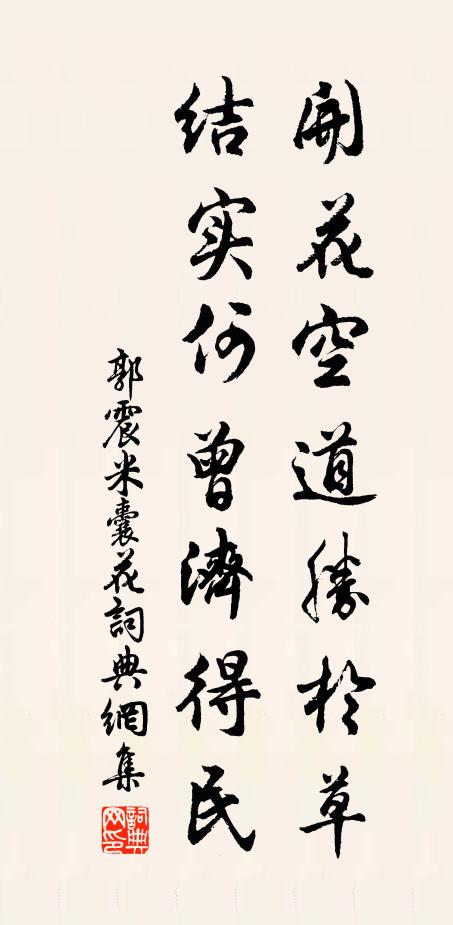 開花空道勝於草
结实何曾濟得民
郭震米囊花詞典網集
詞典网印